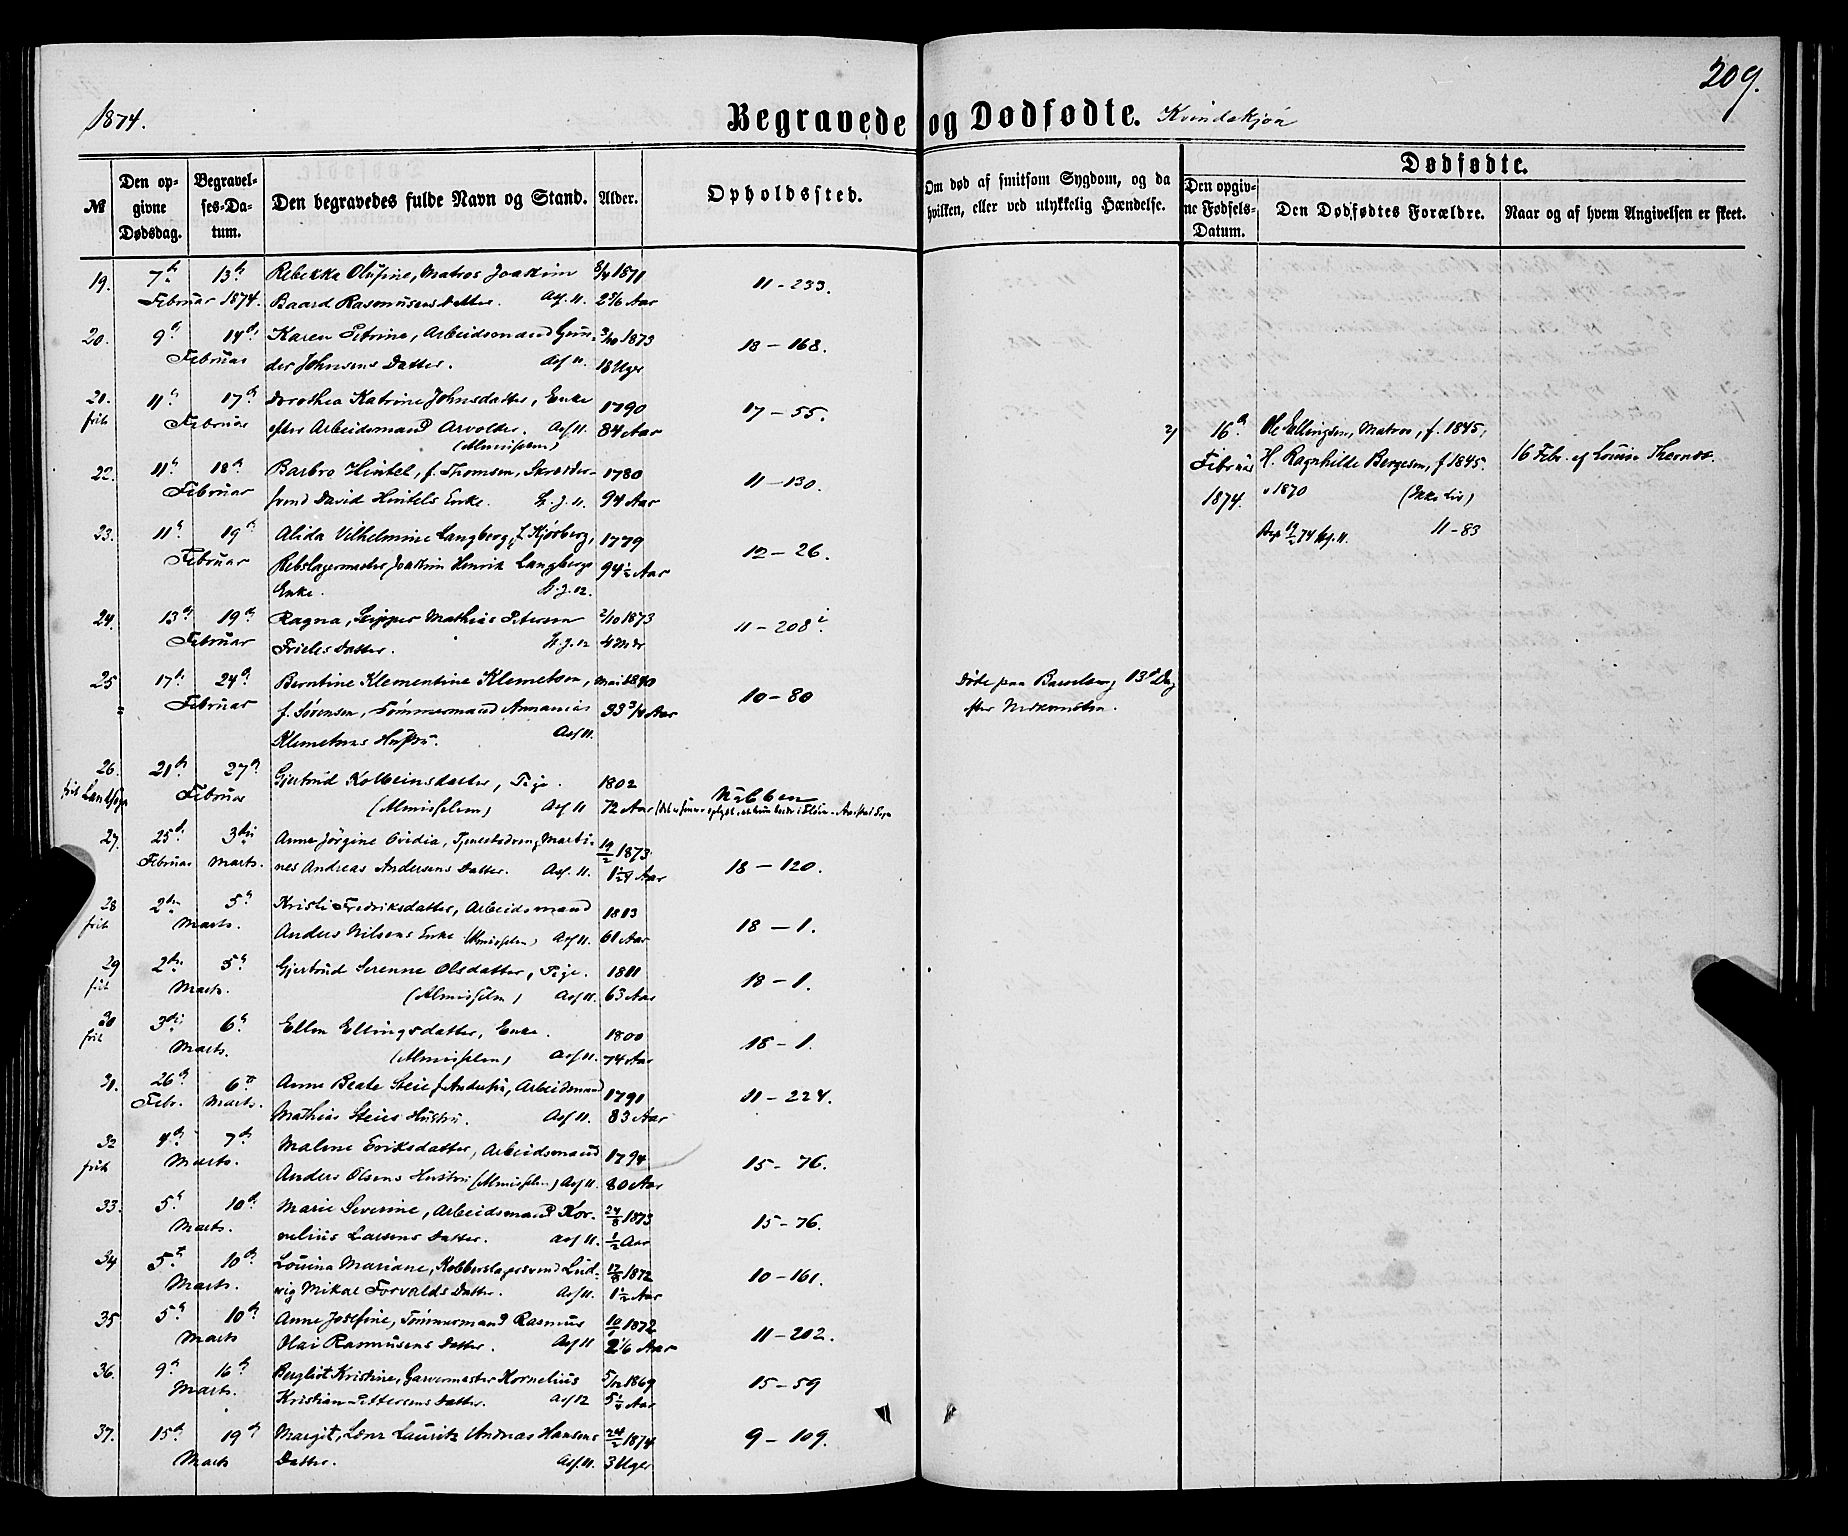 209.
1874.
Begravede og Dødfødte. Kvindekjøn
№
Den opgivne Dødsdag.
Begravelses-Datum.
Den begravedes fulde Navn og Stand.
Alder.
Opholdssted.
Om død af smitsom Sygdom, og da hvilken, eller ved ulykkelig Hændelse.
Dødfødte.
Den opgivne Fødsels-Datum.
Den Dødfødtes Forældre.
Naar og af hvem Angivelsen er skeet.
19. 7de 13de Rebekka Olufine, Matros Joakim 1871
Februar 1874. Baard Rasmusens Datter. Asf. 11. Aar 11 - 233.
20. 9de 14de Karen Petrine, Arbeidsmand Gun- 3/10 1873
Februar der Johnsens Datter. Asf 11. 18 Uger 18 - 168.
21. 11te 17de Dorothea Katrine Johnsdatter, Enke 1790
frit Februar efter Arbeidsmand Arvolder. Asf 11. 84 Aar 17 - 55.
(Almisselem)
22. 11te 18de Barbro Hintel, f. Thomsen, 1780
Februar svend David Hintels Enke. 94 Aar 11 - 130.
23. 11te 19de Alida Vilhelmine Langberg, f. Kjørberg, 1779
Februar Rebslagermester Joakim Henrik Langbergs 94½ Aar 12 - 26.
Enke.
24. 13de 19de Ragna, Skipper Mathias Petersen 2/10 1873
Februar Frieles Datter. 4 Mdr 11 - 208
25 17de 24de Berntine Klementine Klemetsen, Mai 1840
Februar f. Sørensen, Tømmermand Annanias 33 3/4 Aar 10 - 80
Klemetsens Hustru. Asf 11.
Døde paa Barselseng 13de Dag
efter Nedkomsten.
26. 21de 27de Gjertrud Kolbeinsdatter, Pige. 1802
frit Februar (Almisselem) Asf 11 72 Aar Nubben
27. 25de 3die Anne Jørgine Ovidia, Tjenestedreng Marti- 19/2 1873
Februar Marts. nes Andreas Andersens Datter. Asf. 11. Aar 18 - 120.
28 2den 5te Kristi Fredriksdatter, Arbeidsmand 1813
frit Marts. Anders Nilsens Enke (Almisselem) Asf 11. 61 Aar 18 - 1.
29 2den 5te Gjertrud Serenne Olsdatter, Pige. 1811
frit Marts. (Almisselem) Asf 11. 63 Aar 18 - 1.
30 3die 6te Ellen Ellingsdatter, Enke. 1800
frit Marts. (Almisselem) Asf 11. 74 Aar 18 - 1.
31. 26de 6te Anne Beate Steie f. Andersen, Arbeidsmand 1791
Febr. Marts. Mathias Steies Hustru. Asf 11. 83 Aar 11 - 224.
32 4de 7de Malene Eriksdatter, Arbeidsmand 1794
frit Marts. Anders Olsens Hustru (Almisselem) Asf 11. 80 Aar 15 - 76.
33. 5te 10de Marie Severine, Arbeidsmand Kor- 24/8 1873
Marts. nelius Larsens Datter. Asf 11. ½ Aar 15 - 76.
34 5te 10de Lovina Mariane, Kobberslagersvend Lud- 1872
Marts. vig Mikal Torvalds Datter. Asf 11. 1½ Aar 10 - 161.
35 5te 10de Anne Josefine, Tømmermand Rasmus 1872
Marts Olai Rasmusens Datter. Asf 11 2 1/6 Aar 11 - 202.
36. 9de 16de Bergliot Kristine, Garvermester Kornelius 1869
Marts. Kristian Pettersens Datter. Asf 12 Aar 15 - 59
37. 15de 19de Margit, Lods Lauritz Andreas Hansens 24/2 1874
Marts Datter. Asf. 11. 3 Uger 9 - 109.
2) 16de Ole Ellingsen, Matros, f. 1845,
Februar H. Ragnhilde Bergesen, f 1845.
1874. v 1870 (Ikke Liv)
11 - 83
16 Febr. af Lovise